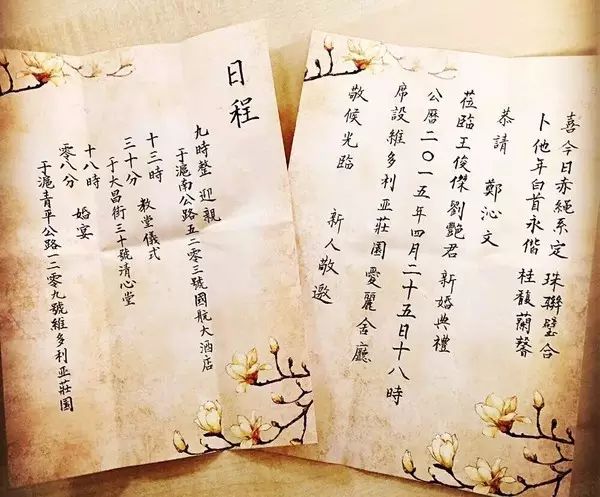 喜今日赤繩系定 珠聯璧合
卜他年白首永偕 桂馥蘭馨
恭請 鄭沁文
莅臨王俊傑劉艷君新婚典禮
公曆二〇一五年四月二十五日十八時
席設維多利亞莊園愛麗舍廳
敬候光臨 新人敬邀
日程
九時整 迎親
于滬南公路五二零三號國航大酒店
十三時 教堂儀式
三十分 于大昌街三十號清心堂
十八時 婚宴
零八分 于滬青平公路一二零九號維多利亞莊園